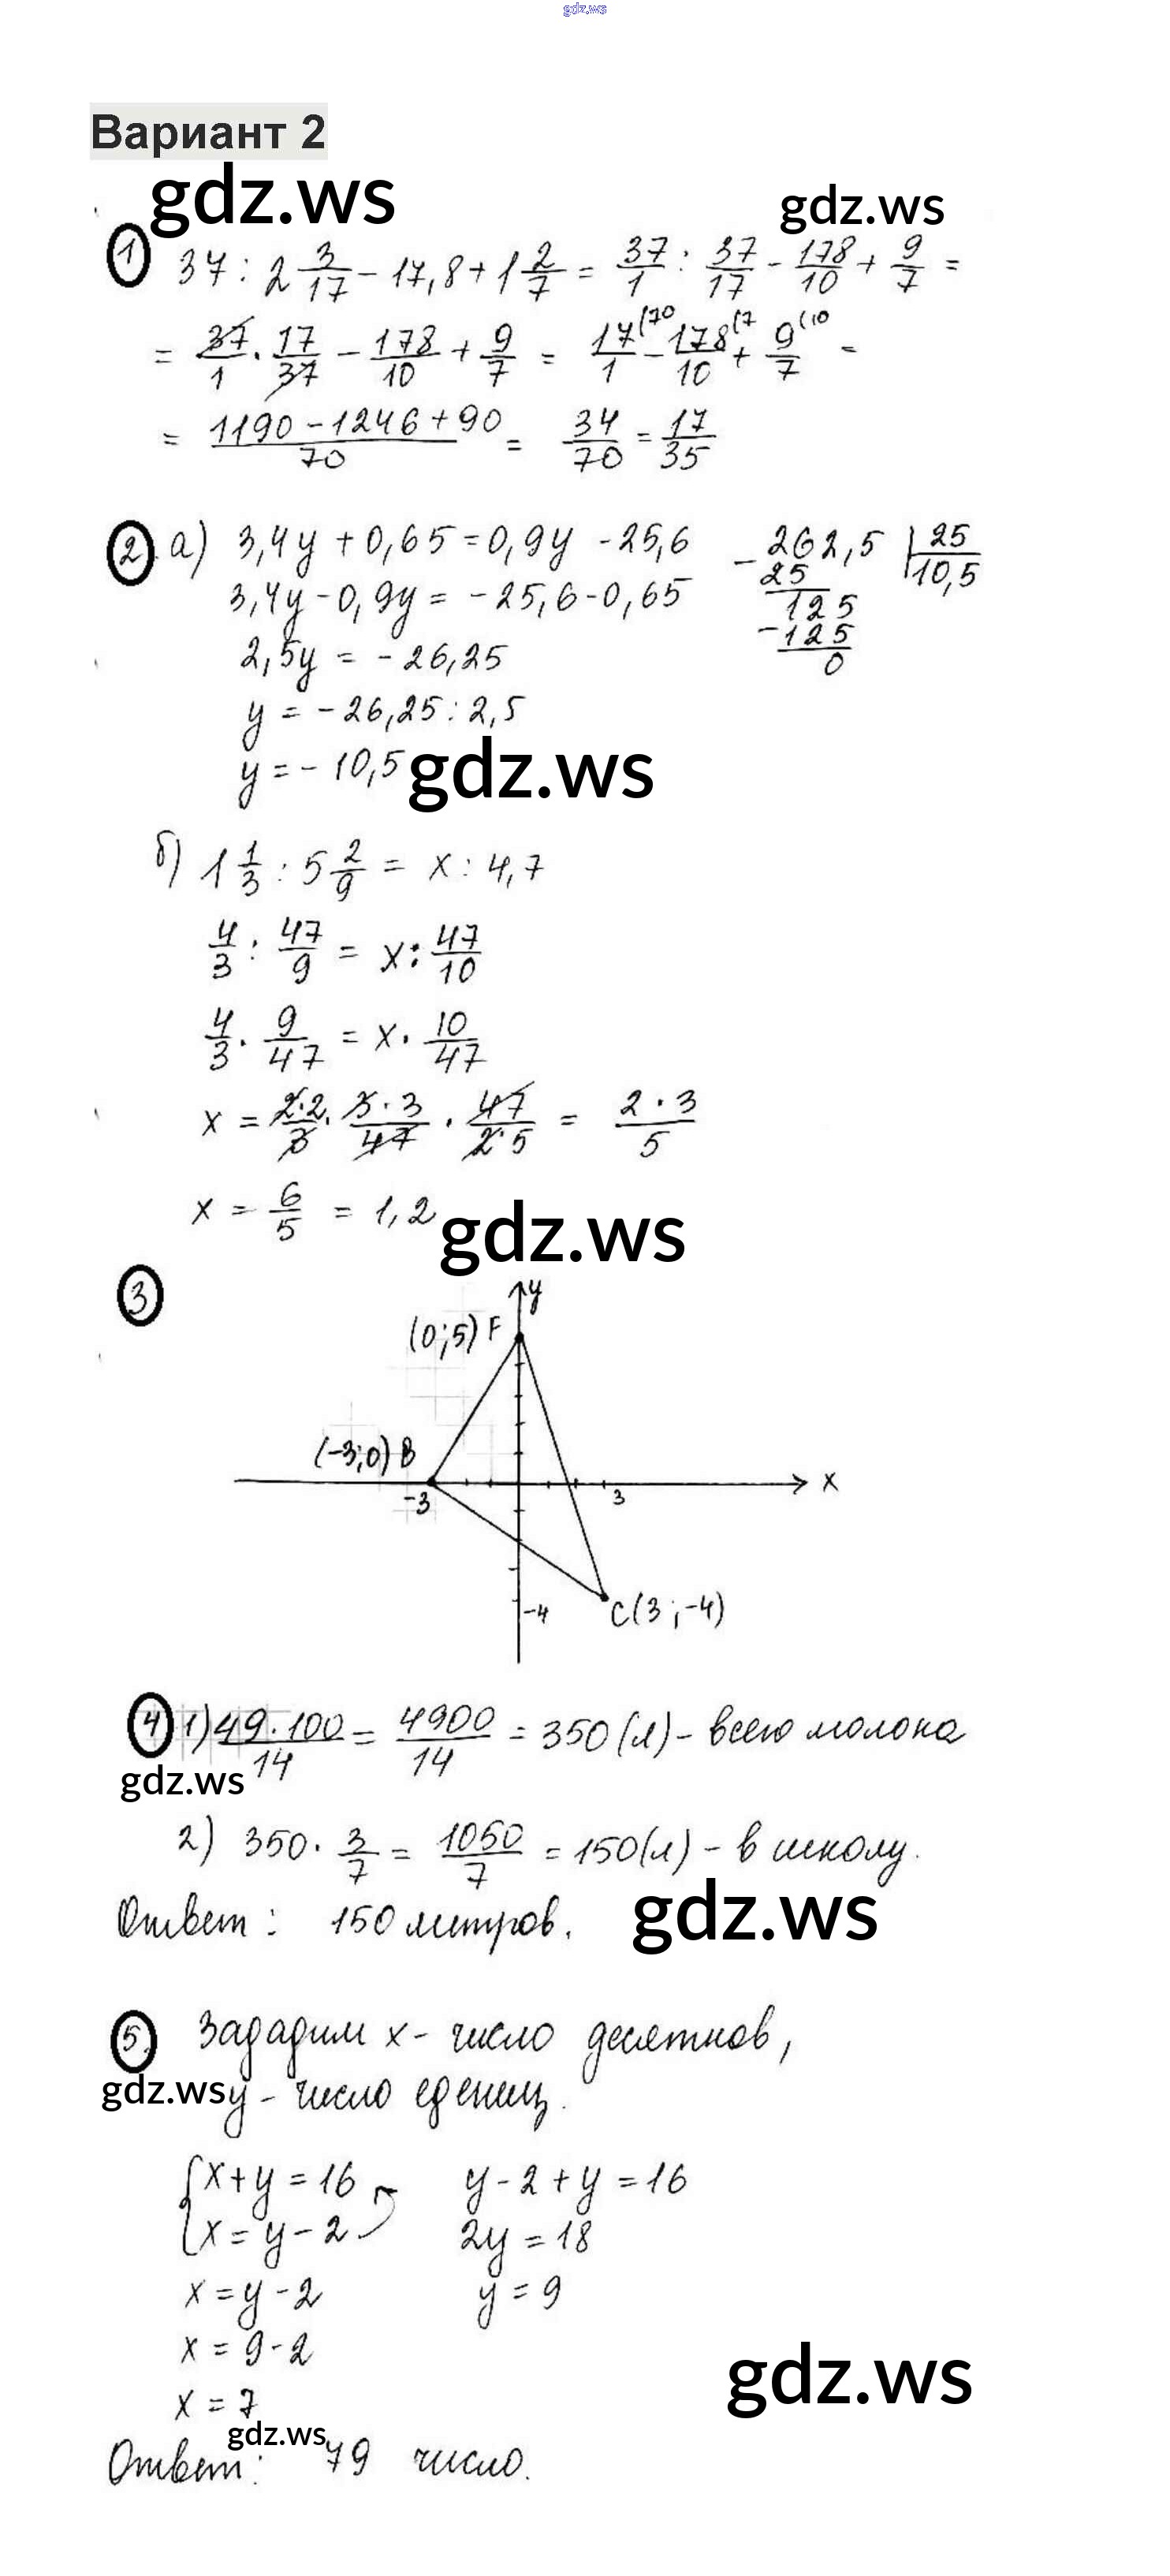 gdz.ws
Вариант 2
gdz.ws gdz.ws
1 37 : 2 3/17 - 17,8 + 1 2/7 = 37/1 : 37/17 - 178/10 + 9/7 =
= 37/1 · 17/37 - 178/10 + 9/7 = 17/1 (70 - 178/10 (7 + 9/7 (10 =
= (1190 - 1246 + 90)/70 = 34/70 = 17/35
2 а) 3,4y + 0,65 = 0,9y - 25,6
3,4y - 0,9y = -25,6 - 0,65
2,5y = -26,25
y = -26,25 : 2,5
y = -10,5 gdz.ws
- 262,5 | 25
25 10,5
125
- 125
0
б) 1 1/3 : 5 2/9 = x : 4,7
4/3 : 47/9 = x : 47/10
4/3 · 9/47 = x · 10/47
x = 2·2/3 · 3·3/47 · 47/2·5 = 2·3/5
x = 6/5 = 1,2 gdz.ws
3
y
(0;5) F
(-3;0) B
-3 3 x
-4 C(3;-4)
4 1) 49·100/14 = 4900/14 = 350 (л) - всего молока
gdz.ws
2) 350 · 3/7 = 1050/7 = 150 (л) - в школу.
Ответ: 150 литров. gdz.ws
5. Зададим x - число десятков,
gdz.ws y - число едениц.
{ x + y = 16 y - 2 + y = 16
x = y - 2 2y = 18
x = y - 2 y = 9
x = 9 - 2
gdz.ws
x = 7
gdz.ws
Ответ: 79 число.